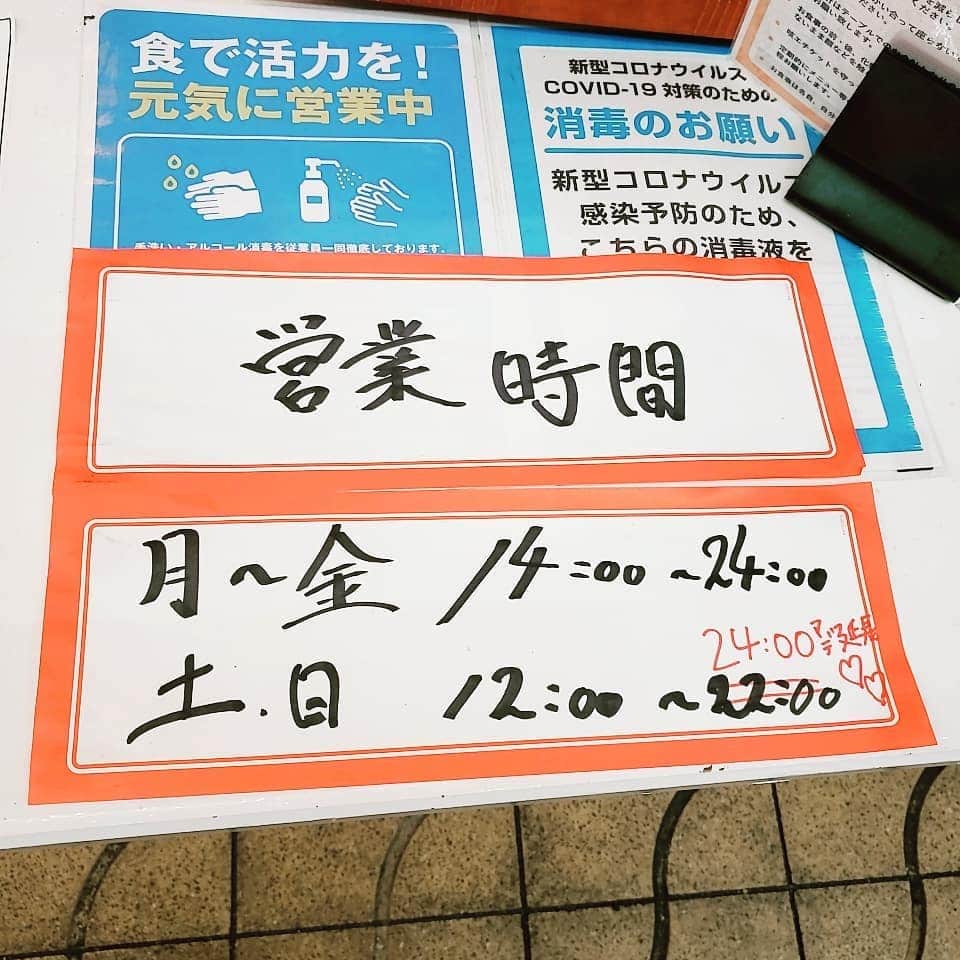 食で活力を!
元気に営業中
手洗い・アルコール消毒を従業員一同徹底しております。
新型コロナウイルス
COVID-19 対策のための
消毒のお願い
新型コロナウイルス
感染予防のため、
こちらの消毒液を
営業時間
月~金 14:00~24:00
24:00マデ延長
土.日 12:00~22:00